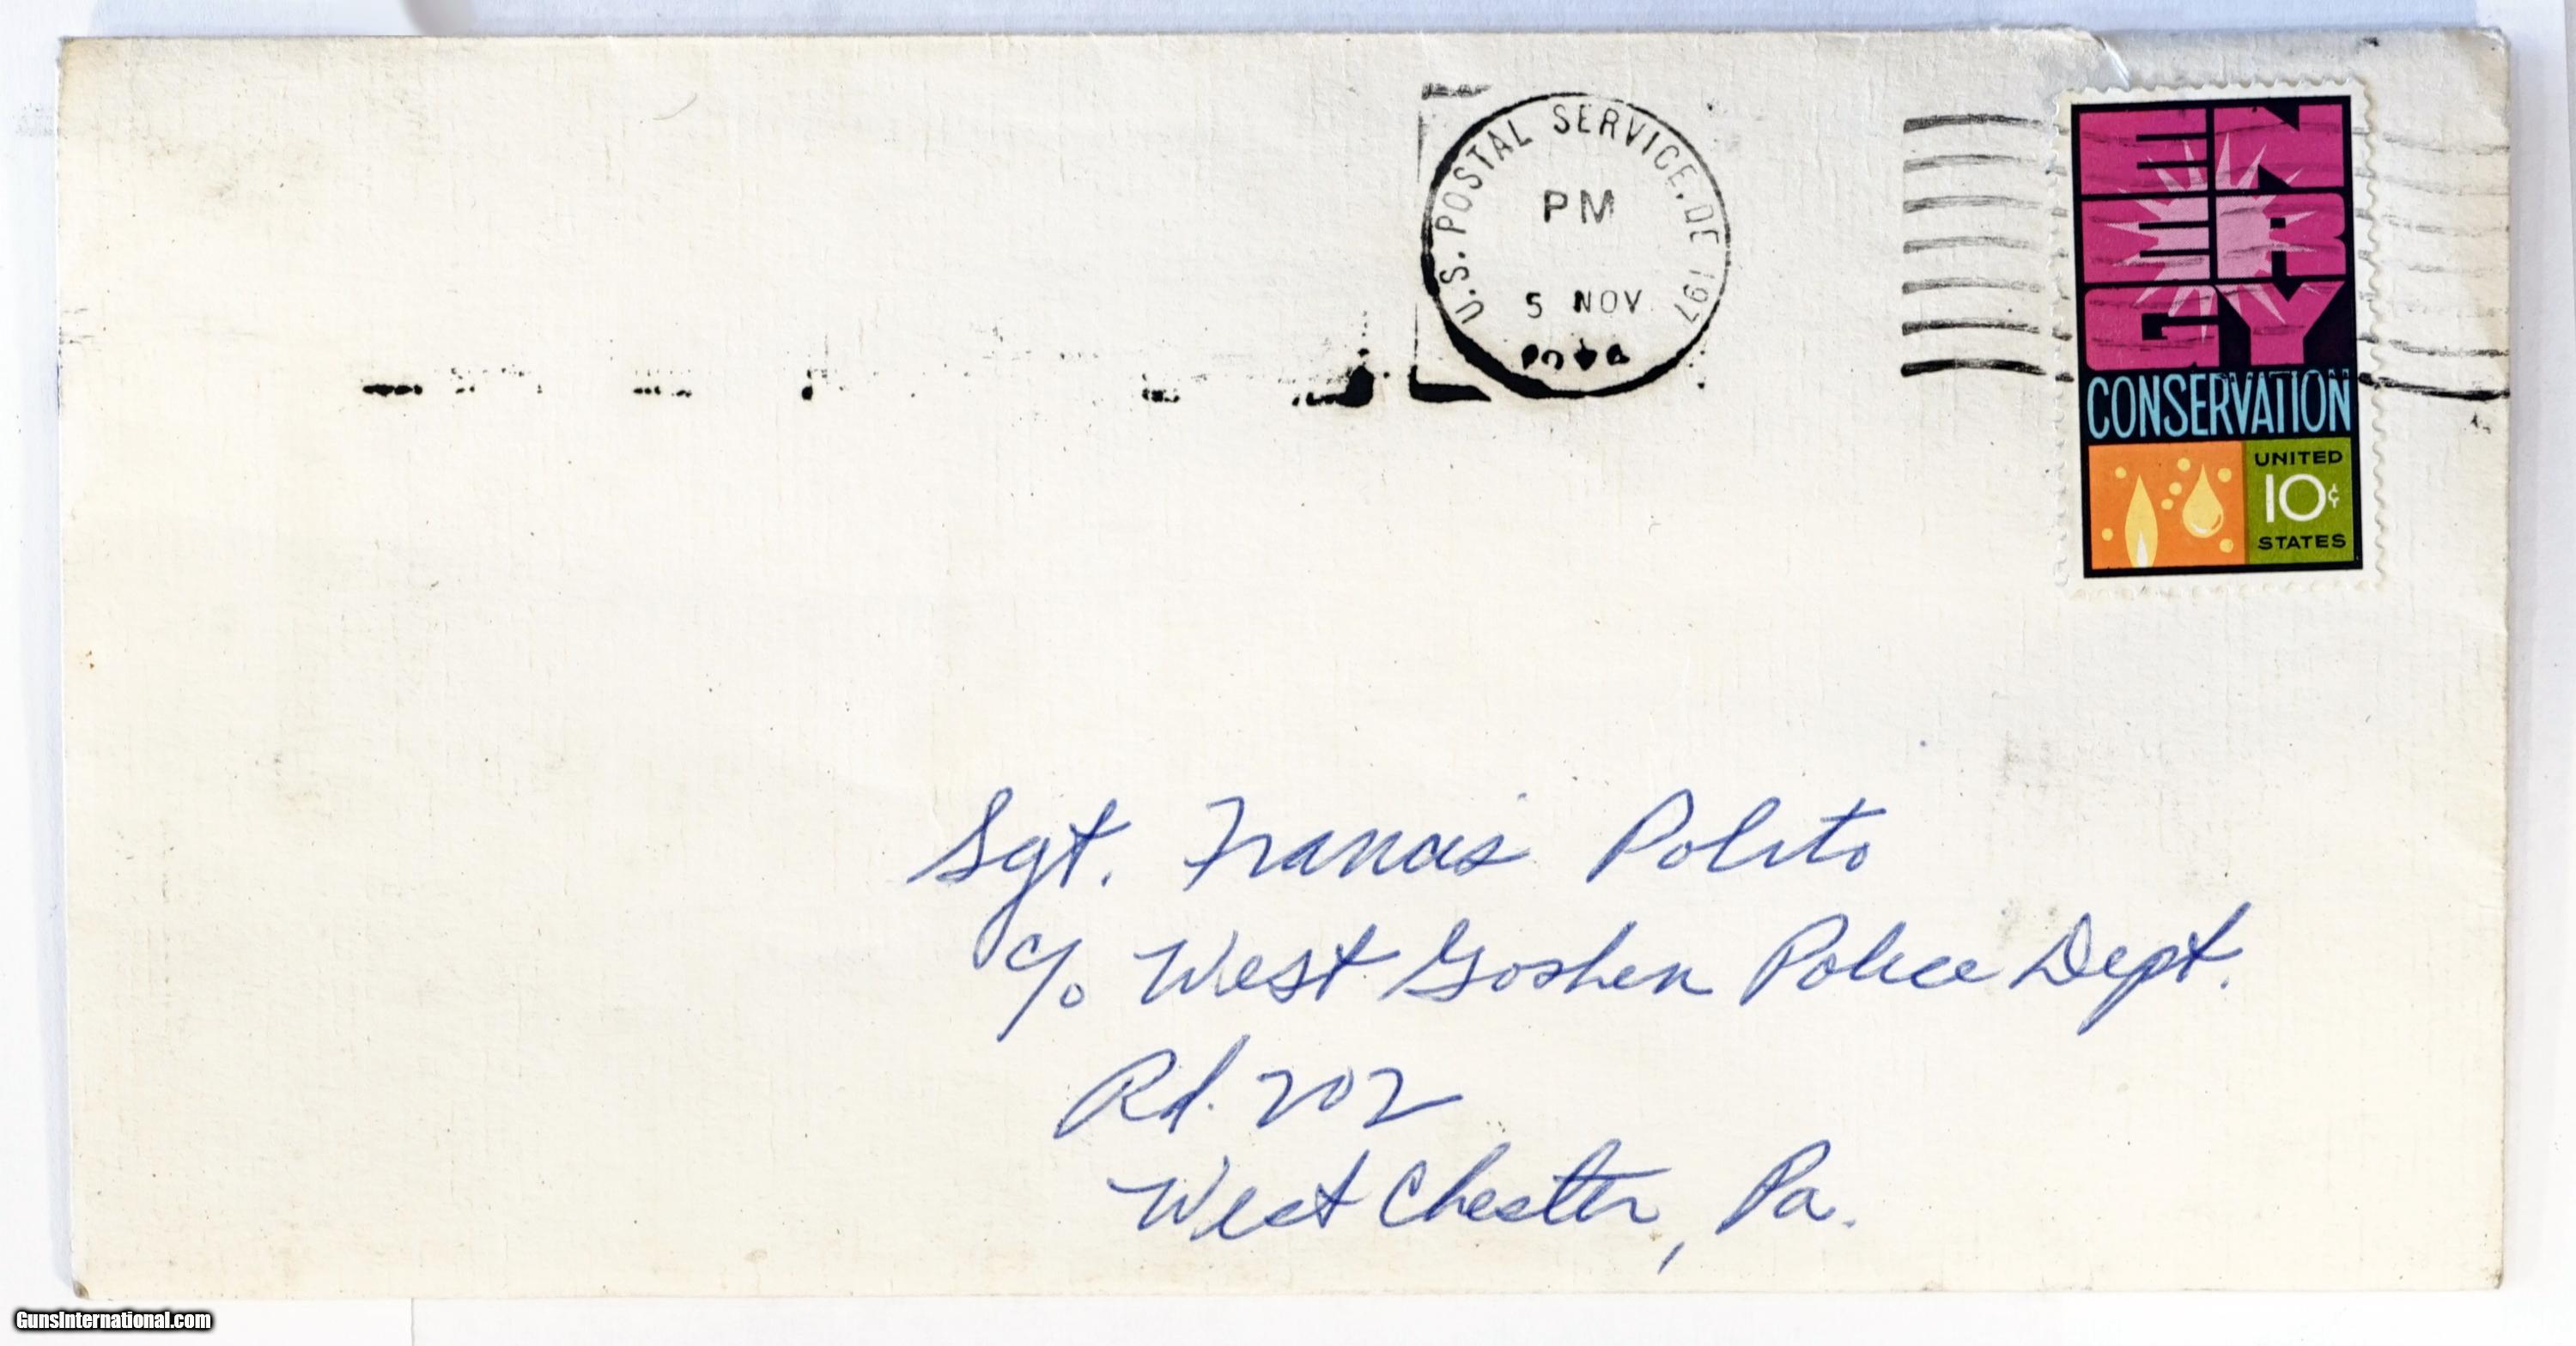 U.S. POSTAL SERVICE, DE 197
PM
5 NOV
ENERGY
CONSERVATION
UNITED
10¢
STATES
Sgt. Francis Polito
c/o West Goshen Police Dept.
Rd. 202
West Chester, Pa.
GunsInternational.com